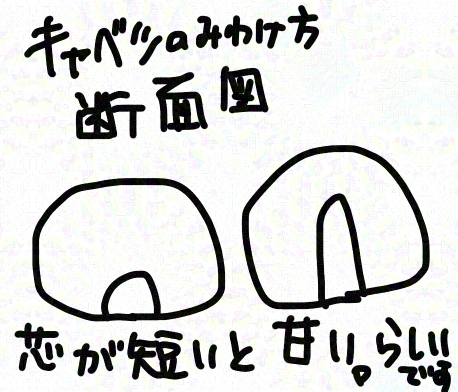 キャベツのみわけ方
断面図
芯が短いと甘い。らしい
です